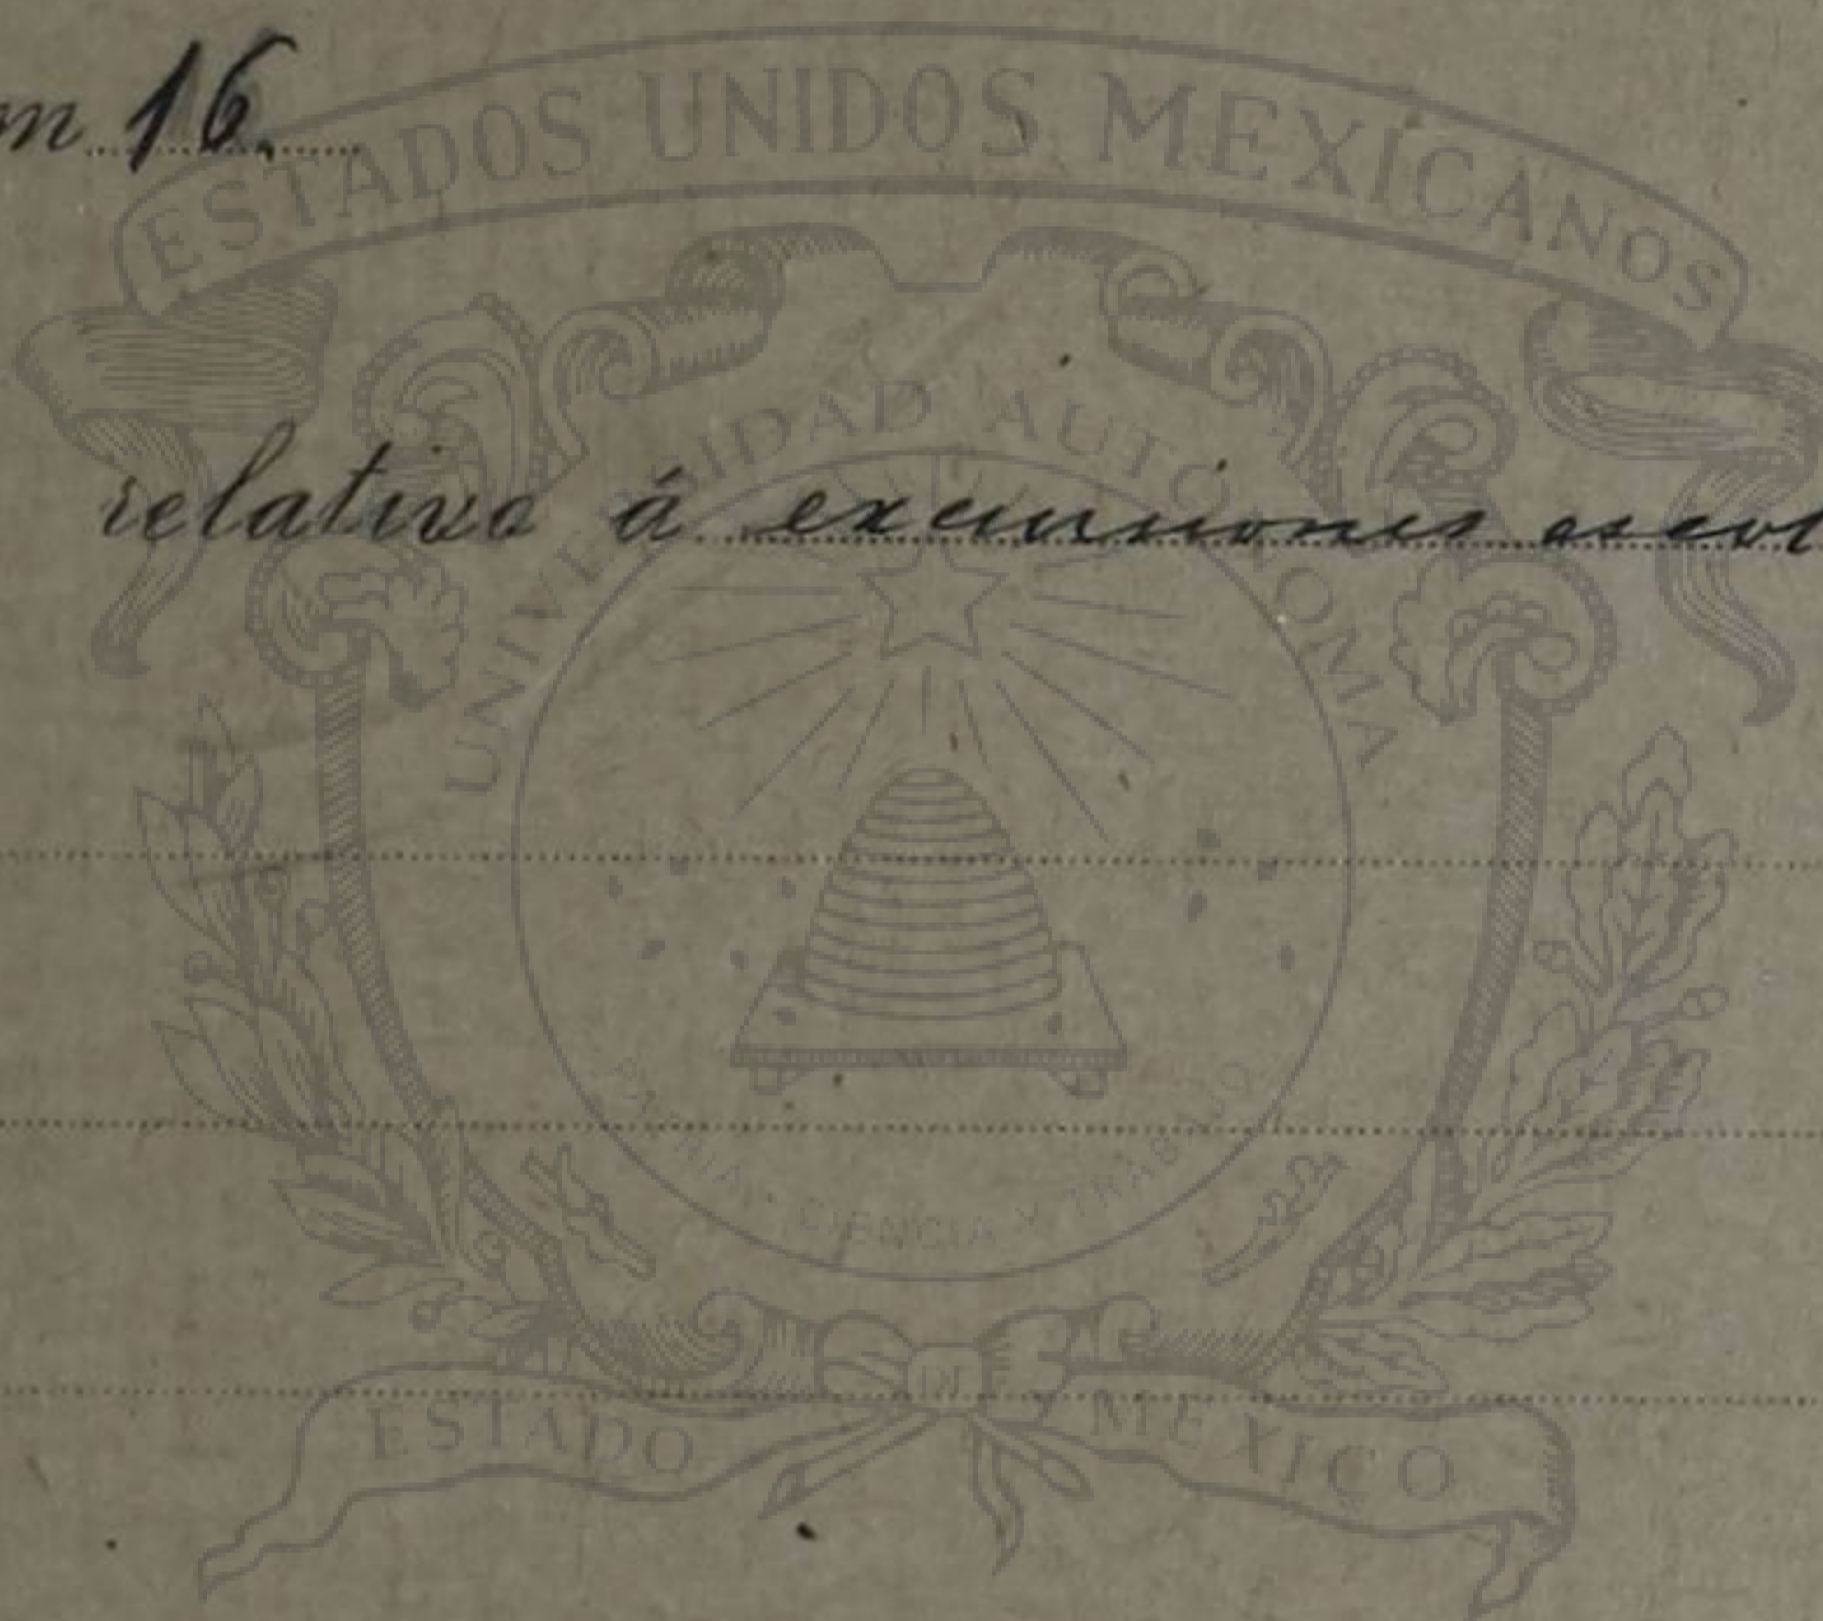 m 16.
ESTADOS UNIDOS MEXICANOS
UNIVERSIDAD AUTÓNOMA
relativo á excursiones escol
PATRIA · CIENCIA Y TRABAJO
DE
ESTADO MEXICO